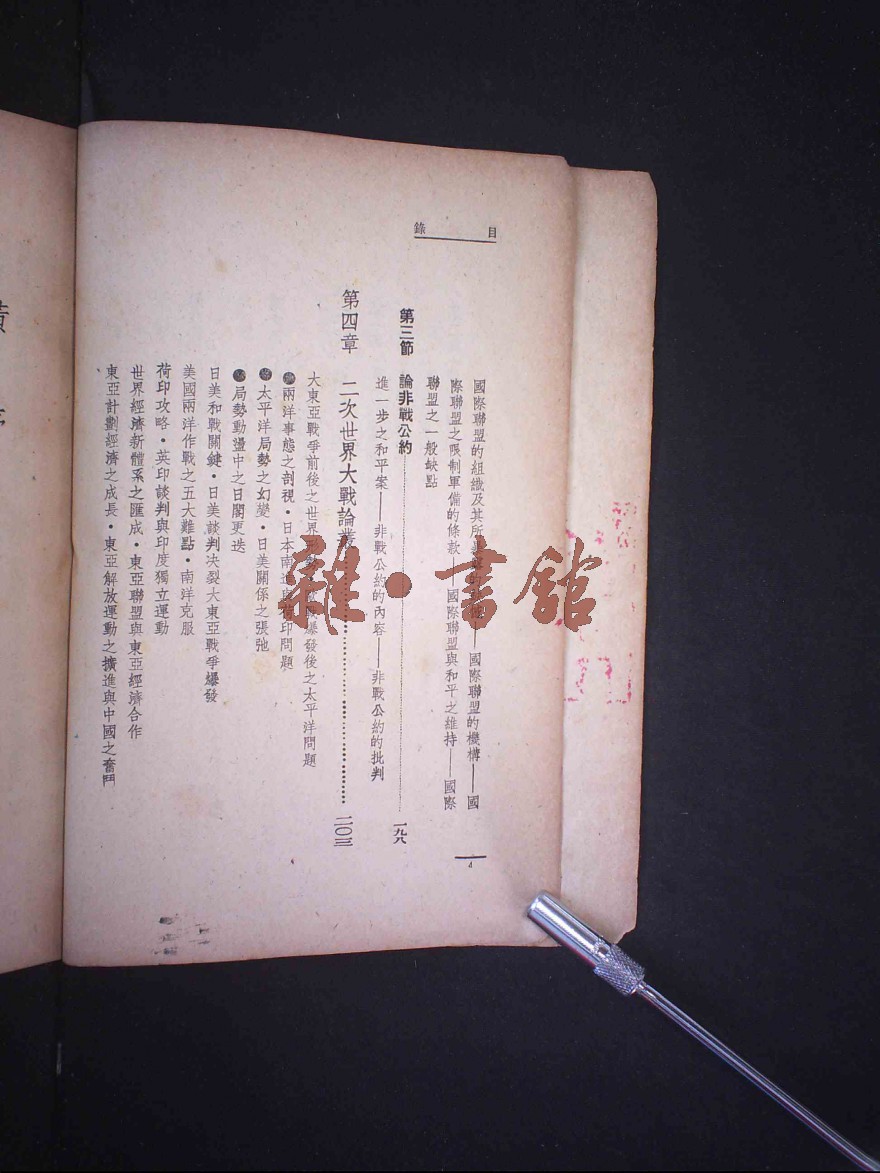 目錄
國際聯盟的組織及其所——國際聯盟的機構——國
際聯盟之限制軍備的條款——國際聯盟與和平之維持——國際
聯盟之一般缺點
第三節 論非戰公約 一九八
進一步之和平案——非戰公約的內容——非戰公約的批判
第四章 二次世界大戰論叢 二〇三
大東亞戰爭前後之世界爆發後之太平洋問題
兩洋事態之剖視・日本南進與荷印問題
太平洋局勢之幻變・日美關係之張弛
局勢動盪中之日閣更迭
日美和戰關鍵・日美談判決裂大東亞戰爭爆發
美國兩洋作戰之五大難點・南洋克服
荷印攻略・英印談判與印度獨立運動
世界經濟新體系之匯成・東亞聯盟與東亞經濟合作
東亞計劃經濟之成長・東亞解放運動之擴進與中國之奮鬥
4
雜・書館